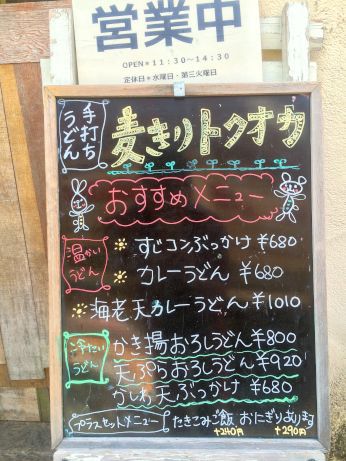 営業中
OPEN*11:30〜14:30
定休日*水曜日・第三火曜日
手打ち
うどん
麦きりトクオカ
おすすめメニュー
温かい
うどん
すじコンぶっかけ ¥680
カレーうどん ¥680
海老天カレーうどん ¥1010
冷たい
うどん
かき揚おろしうどん ¥800
天ぷらおろしうどん ¥920
かしわ天ぶっかけ ¥680
プラスセットメニュー たきこみご飯 おにぎりあります
+240円 +290円